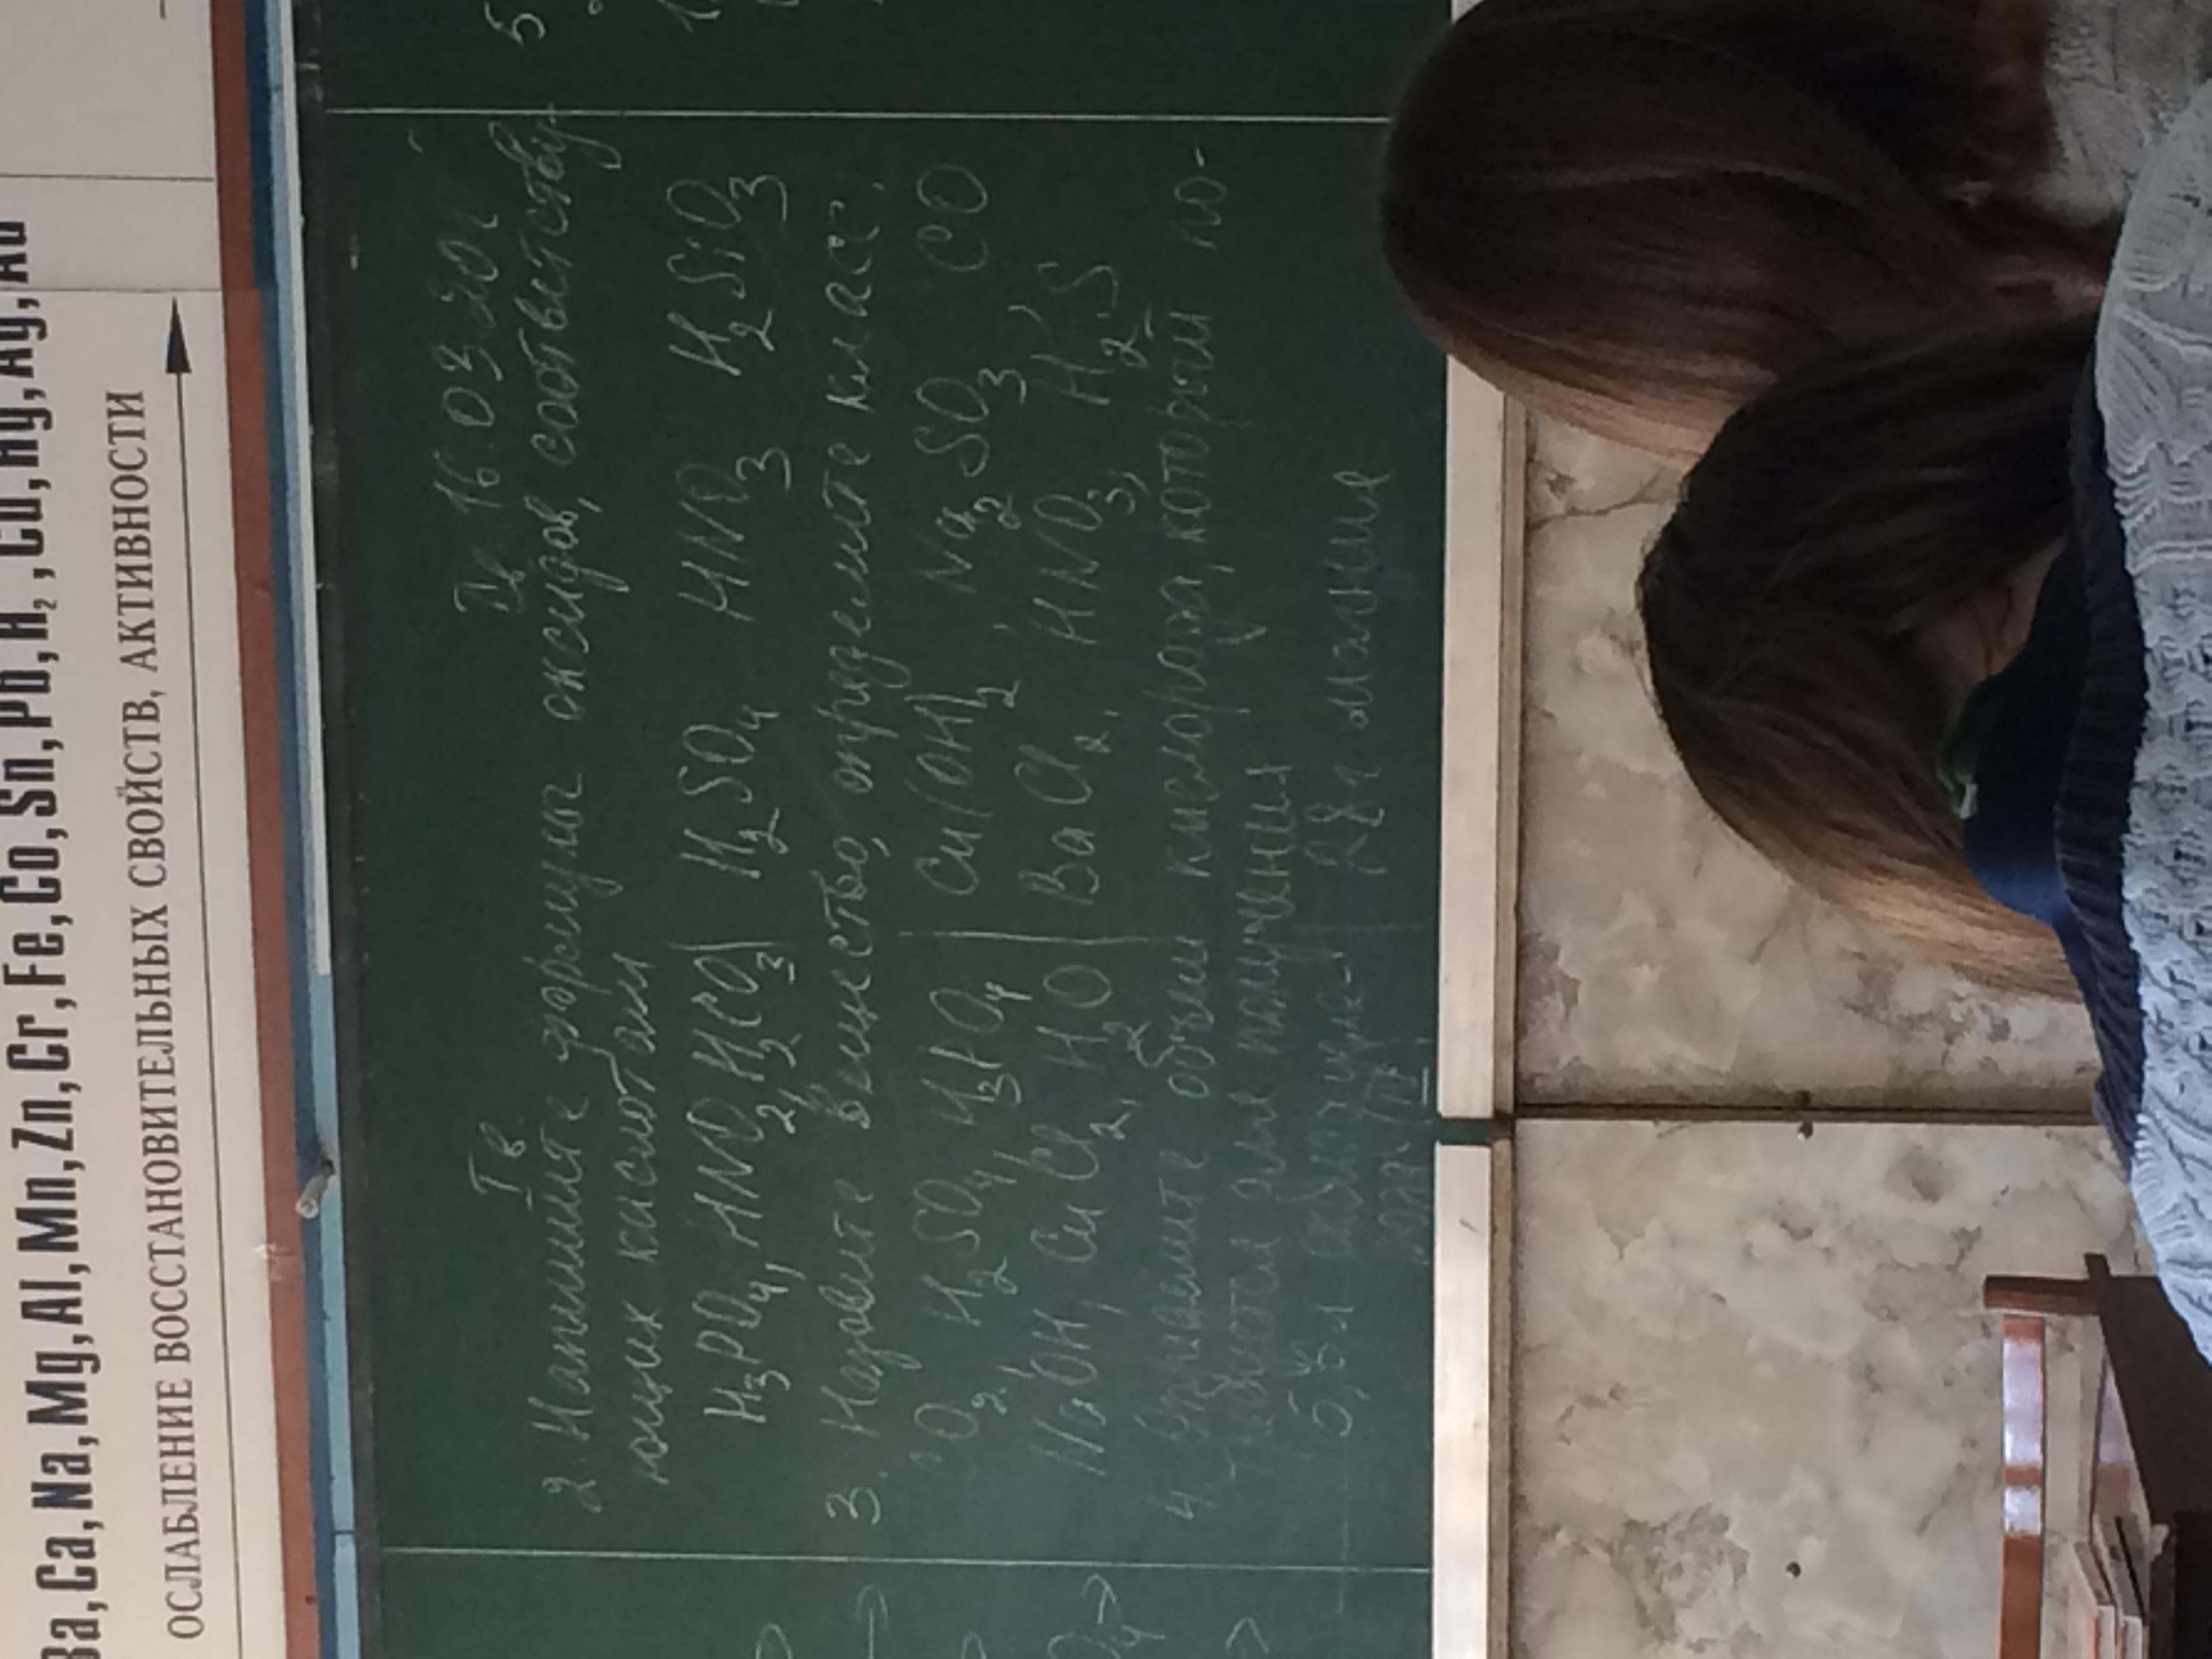 Ba, Ca, Na, Mg, Al, Mn, Zn, Cr, Fe, Co, Sn, Pb, H₂, Cu, Hg, Ag, Au
ОСЛАБЛЕНИЕ ВОССТАНОВИТЕЛЬНЫХ СВОЙСТВ, АКТИВНОСТИ
Iв IIв 16.03.20г
2. Напишите формулы оксидов, соответству-
ющих кислотам
H₃PO₄, HNO₂, H₂CO₃ | H₂SO₄ HNO₃ H₂SiO₃
3. Назовите вещество, определите класс.
CO₂, H₂SO₄, H₃PO₄ | Cu(OH)₂, Na₂SO₃, CO
NaOH, CuCl₂, H₂O | BaCl₂, HNO₃, H₂S
4. объем кислорода, который по-
требуется для получения
28г магние
5